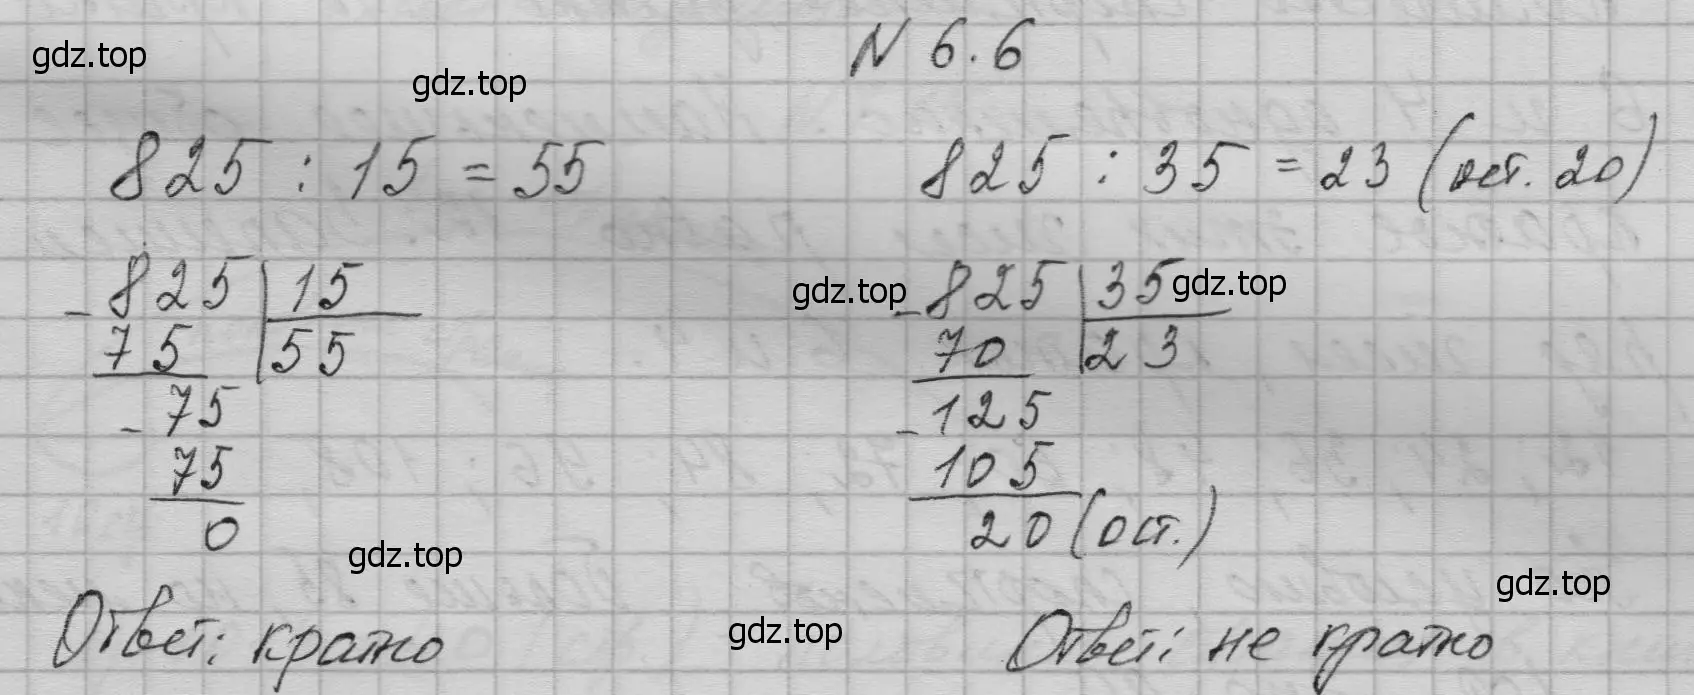 gdz.top
gdz.top
N 6.6
825 : 15 = 55
825 : 35 = 23 (ост. 20)
- 825 | 15
75 | 55
- 75
75
0
gdz.top
gdz.top
- 825 | 35
70 | 23
- 125
105
20 (ост.)
gdz.top
gdz.top
Ответ: кратно
gdz.top
Ответ: не кратно